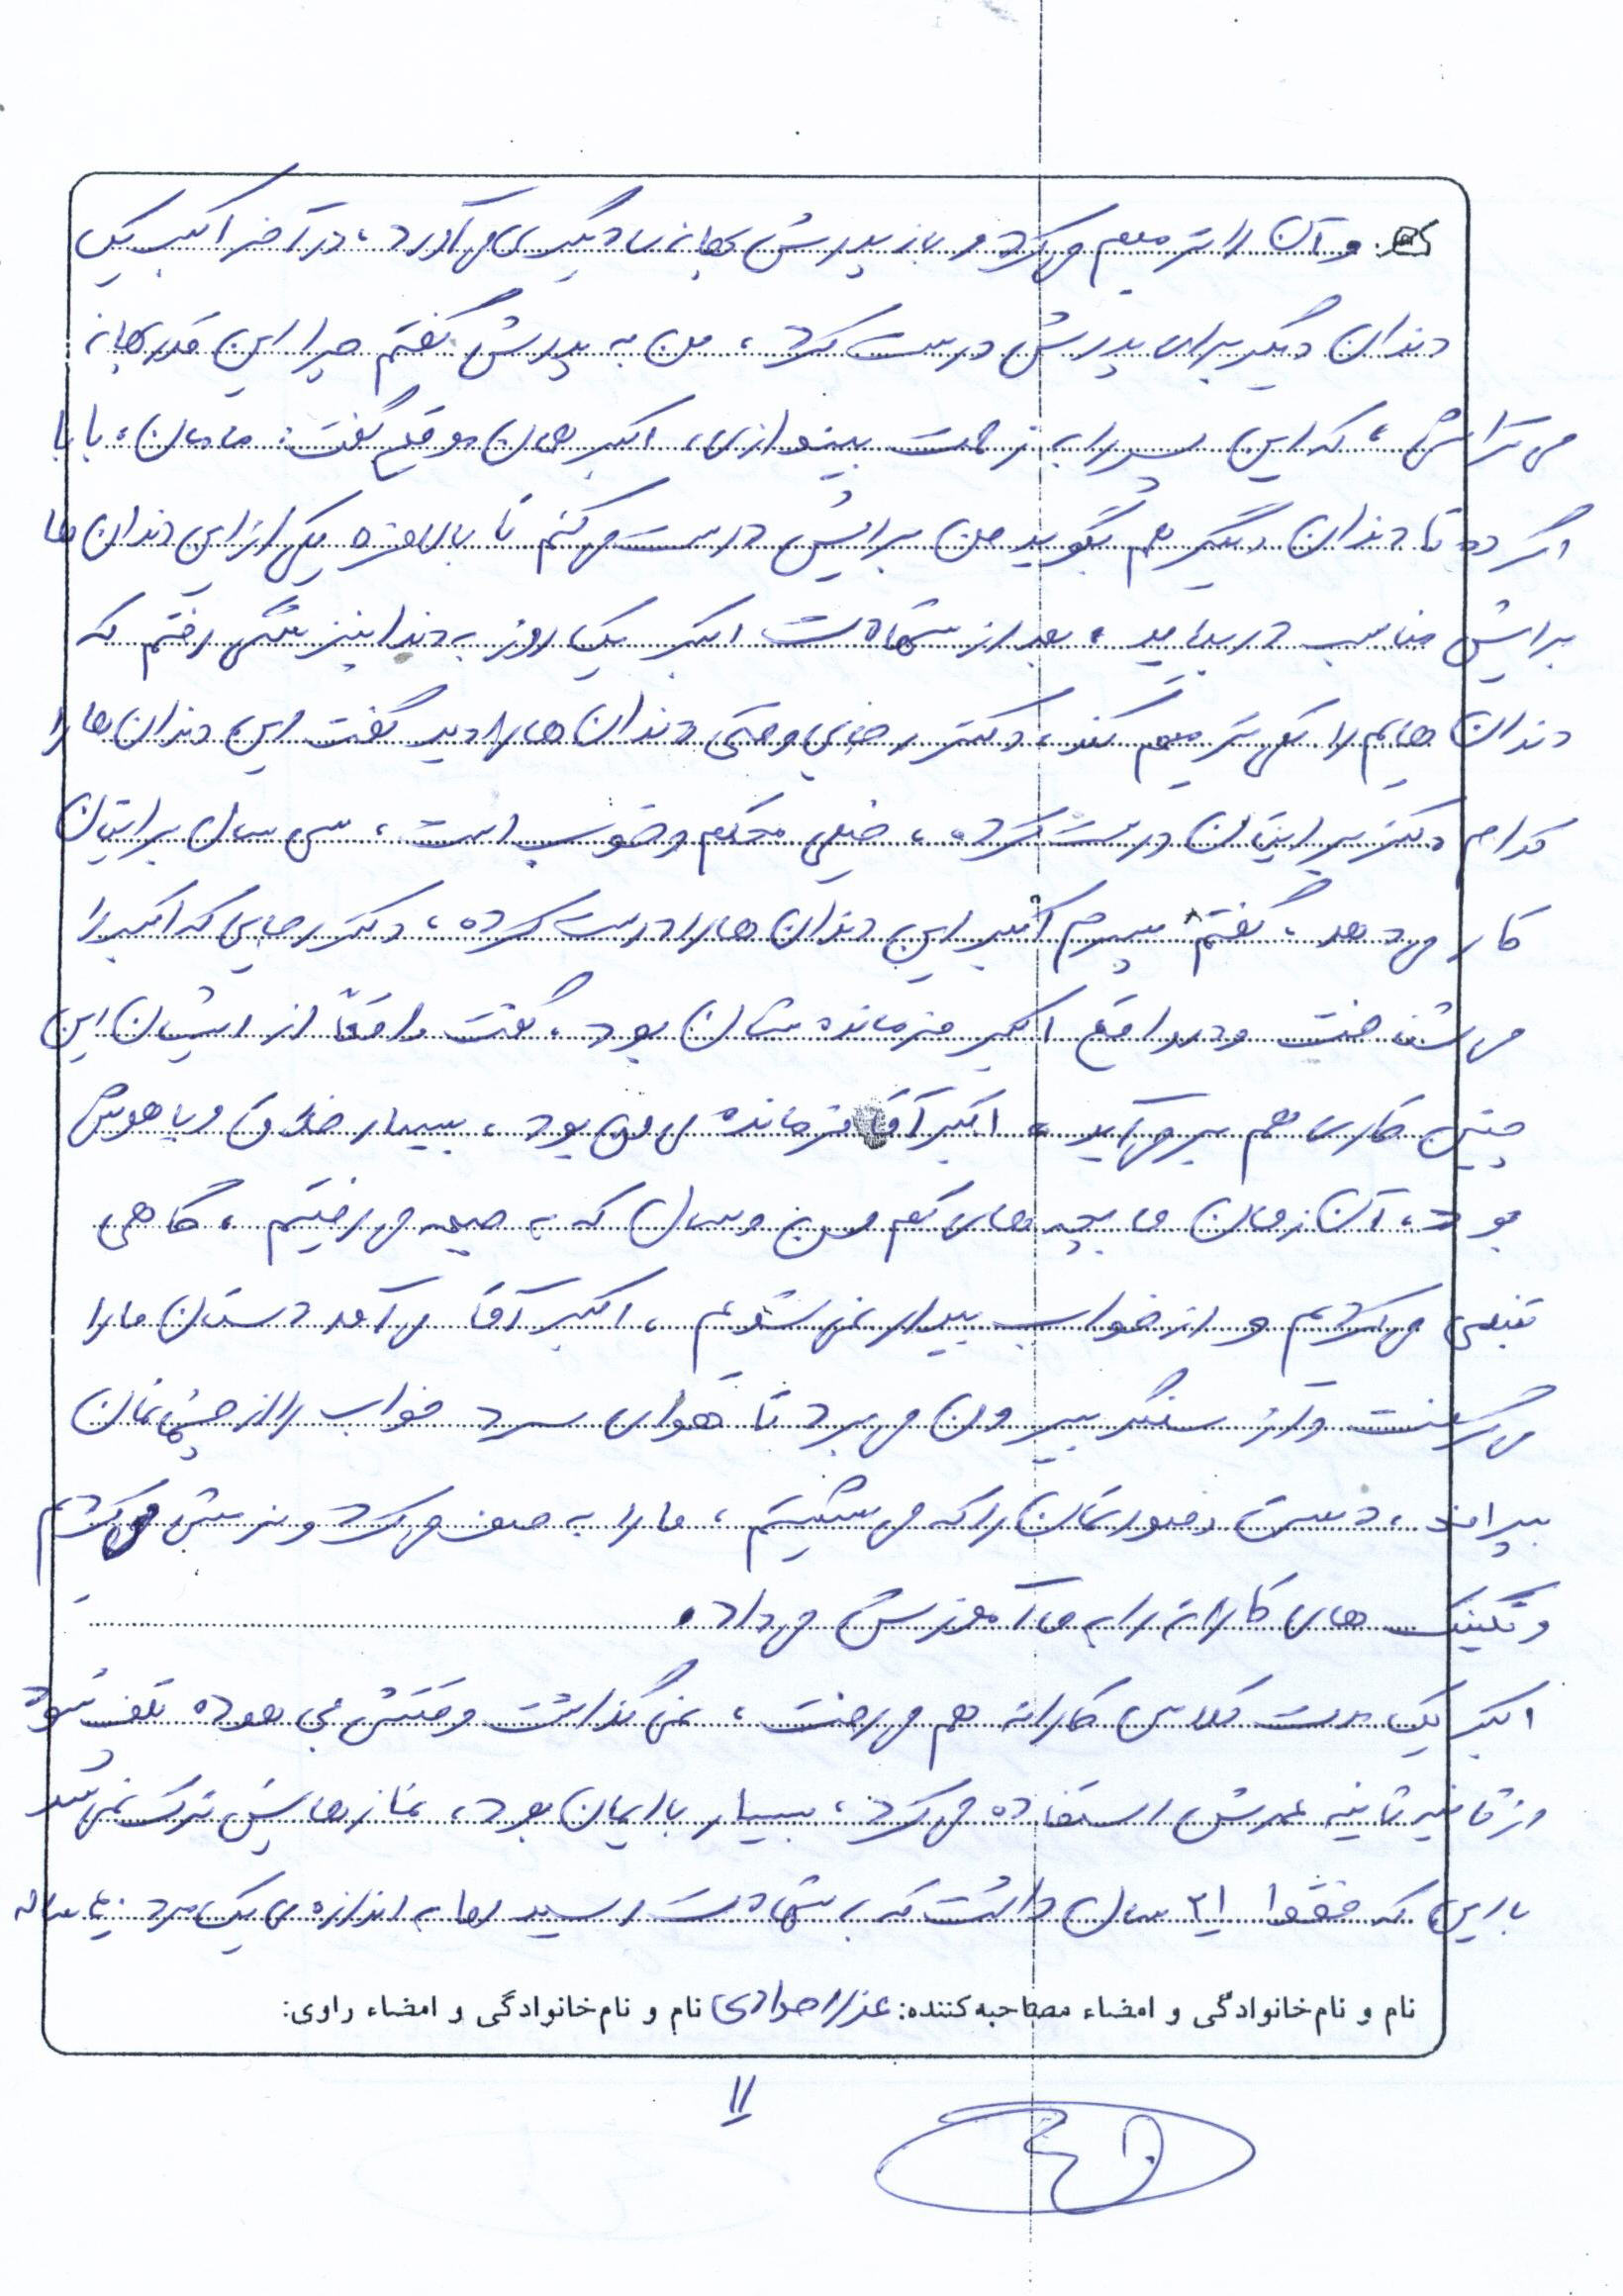 و آن را ترمیم می‌کرد و باز پدرش بهانه‌ی دیگری می‌آورد، در آخر اکبر یک
دندان دیگر برای پدرش درست کرد، من به پدرش گفتم چرا این قدر بهانه
می‌تراشی، که این پسر را به زحمت بیندازی، اکبر همان موقع گفت: مامان، بابا
اگر ده تا دندان دیگر هم بگوید من برایش درست می‌کنم تا بالاخره یکی از این دندان‌ها
برایش مناسب دربیاید، بعد از شهادت اکبر یک روز به دندانپزشکی رفتم که
دندان هایم را کمی ترمیم کند، دکتر رضایی وقتی دندان‌ها را دید گفت این دندان‌ها را
کدام دکتر برایتان درست کرده، خیلی محکم و خوب است، سی سال برایتان
کار می‌دهد، گفتم پسرم اکبر این دندان‌ها را درست کرده، دکتر رضایی که اکبر را
می‌شناخت و در واقع اکبر فرمانده‌شان بود، گفت واقعاً از ایشان این
چنین کاری هم برمی‌آید، اکبر آقا فرمانده‌ی من بود، بسیار خلاق و باهوش
بود، آن زمان ما بچه‌های کم سن و سال که به جبهه می‌رفتیم، گاهی
تنبلی می‌کردیم و از خواب بیدار نمی‌شدیم، اکبر آقا می‌آمد دستان ما را
می‌گرفت و از سنگر بیرون می‌برد تا هوای سرد خواب را از چشمانمان
بپراند، دست و صورتمان را که می‌شستیم، ما را به صف می‌کرد و نرمش می‌کردیم
و تکنیک های کاراته را به ما آموزش می‌داد.
اکبر یک مدت کلاس کاراته هم می‌رفت، نمی‌گذاشت وقتش بی هوده تلف شود
از ثانیه ثانیه عمرش استفاده می‌کرد، بسیار با ایمان بود، نمازهایش ترک نمی‌شد
با این که فقط ۲۱ سال داشت که به شهادت رسید اما به اندازه‌ی یک مرد ساله
نام و نام خانوادگی و امضاء مصاحبه کننده: جوادی نام و نام خانوادگی و امضاء راوی:
۱۱